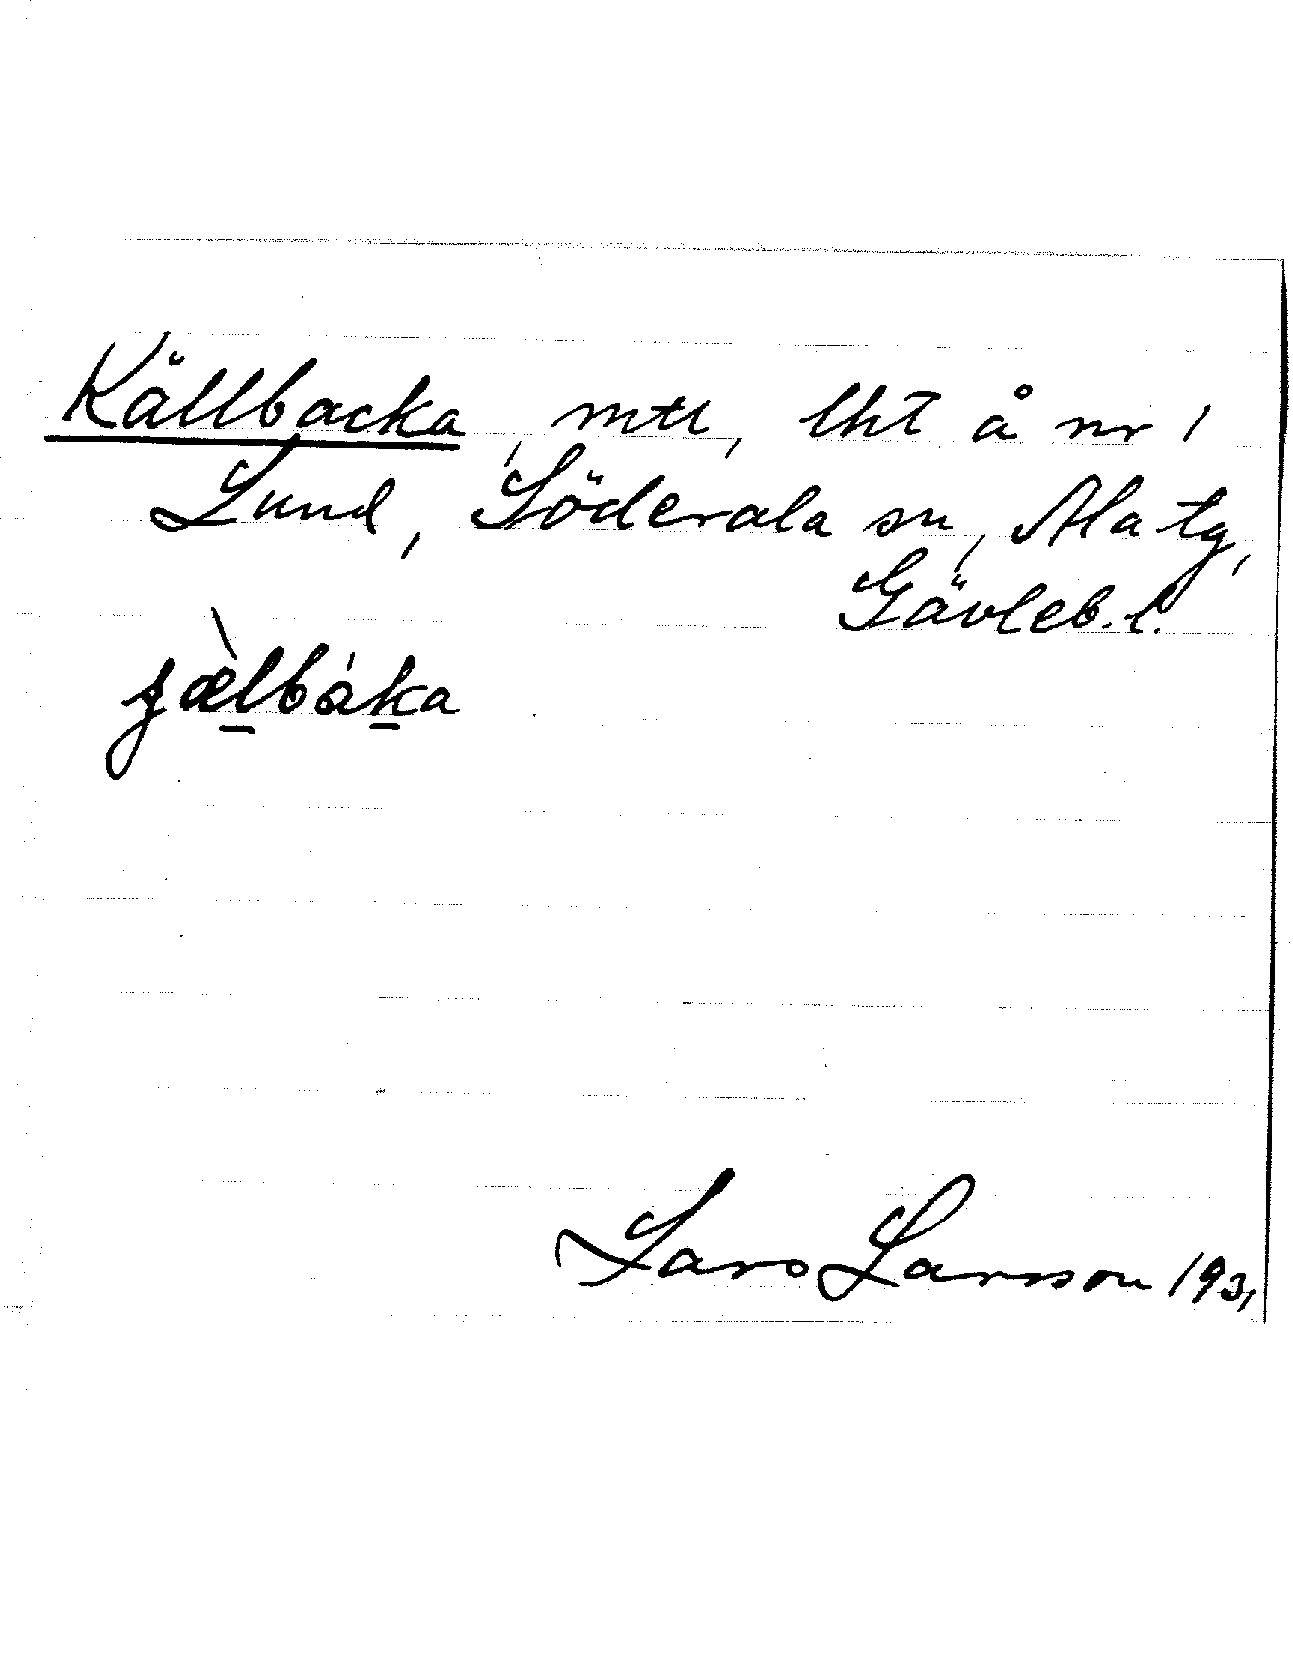 Källbacka, mtl, lht å nr 1
Lund, Söderala sn, Ala tg,
Gävleb. l.
ʂæ̀lbáka
Lars Larsson 1931